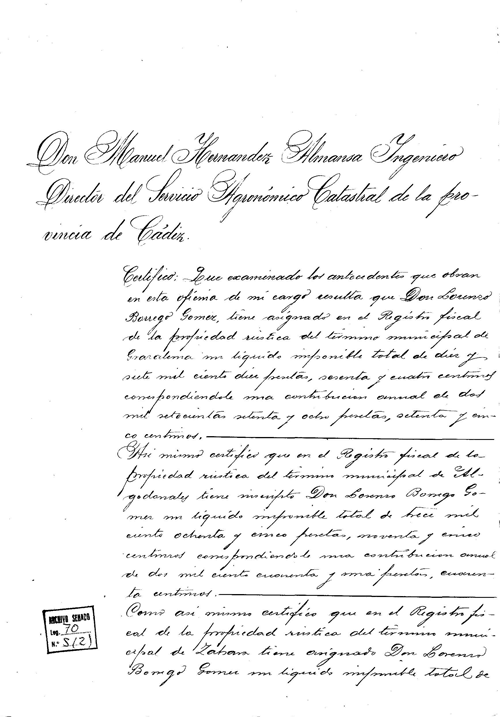 Don Manuel Hernandez Almansa Ingeniero
Director del Servicio Agronómico Catastral de la pro-
vincia de Cádiz.
Certifico: Que examinado los antecedentes que obran
en esta oficina de mi cargo resulta que Don Lorenzo
Borrego Gomez, tiene asignado en el Registro fiscal
de la propiedad rústica del termino municipal de
Grazalema un liquido imponible total de diez y
siete mil ciento diez pesetas, sesenta y cuatro centimos
correspondiendole una contribucion anual de dos
mil setecientas setenta y ocho pesetas, setenta y cin-
co centimos.
Asi mismo certifico que en el Registro fiscal de la
propiedad rústica del término municipal de Al-
godonales tiene inscripto Don Lorenzo Borrego Go-
mez un liquido imponible total de trece mil
ciento ochenta y cinco pesetas, noventa y cinco
centimos correspondiendole una contribucion anual
de dos mil ciento cuarenta y una pesetas, cuaren-
ta centimos.
Como asi mismo certifico que en el Registro fis-
cal de la propiedad rústica del término muni-
cipal de Zahara tiene asignado Don Lorenzo
Borrego Gomez un liquido imponible total de
ARCHIVO SENADO
Leg. 70
N.º 5(2)